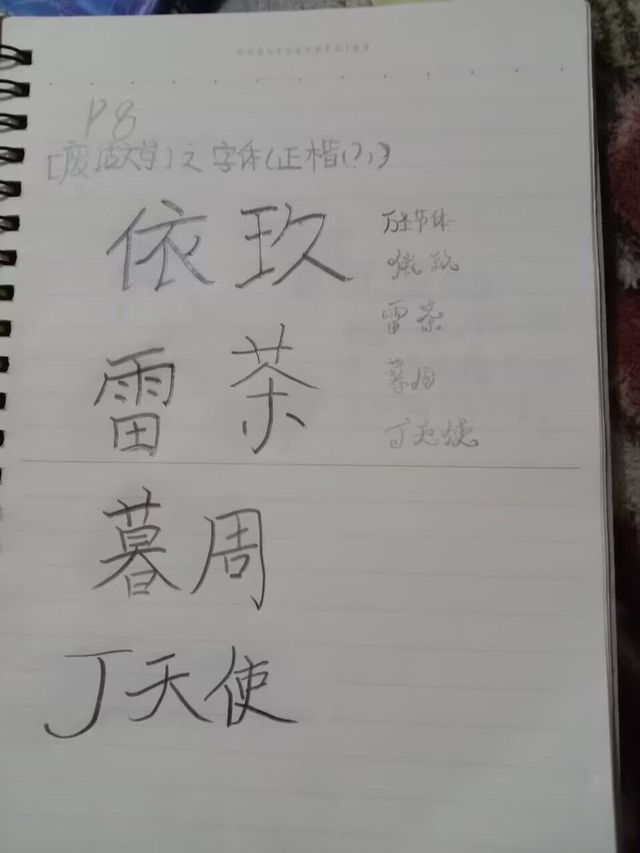 P8
[废话大学]之字体(正楷(?))
依玖
雷茶
暮周
丁天使
万圣节体
依玖
雷茶
暮周
丁天使